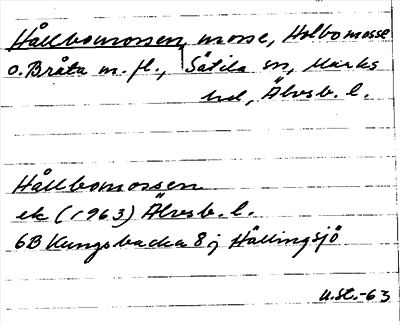 Hållbomossen, mosse, Holbomosse
o. Bråta m. fl., Sätila sn, Marks
hd, Älvsb. l.
Hållbomossen
ek (1963) Älvsb. l.
6B Kungsbacka 8j Hällingsjö
U.St.-63